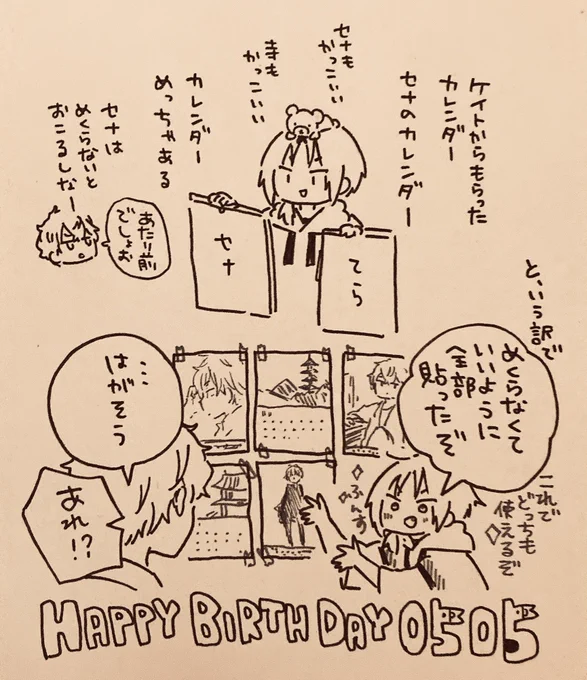 ケイトからもらった
カレンダー
セナのカレンダー
セナも
かっこいい
寺も
かっこいい
カレンダー
めっちゃある
セナは
めくらないと
おこるしなー
あたり前
でしょお
セナ
てら
と、いう訳で
めくらなくて
いいように
全部
貼ったぞ
これで
どっちも
使えるぞ
ふんす
…
はがそう
あれ!?
HAPPY BIRTHDAY 0505